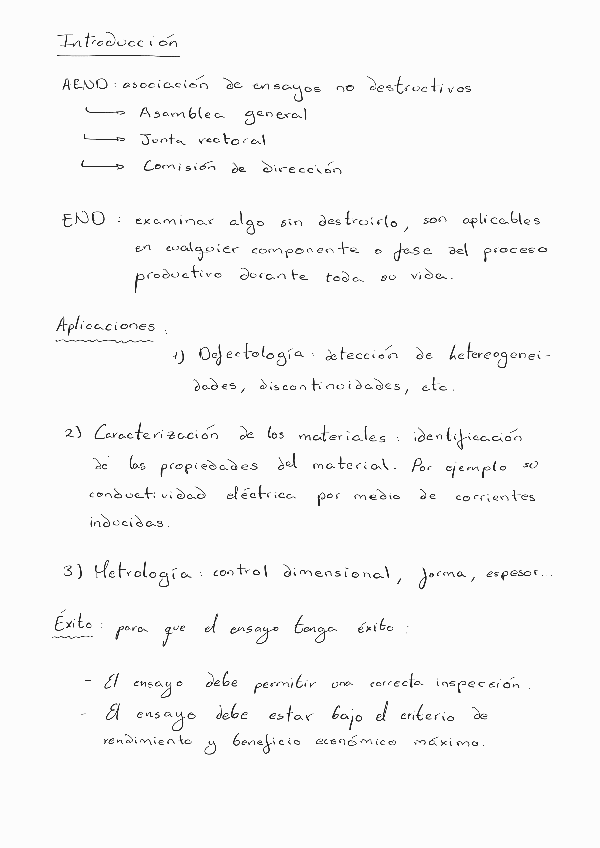 Introducción
AEND : asociación de ensayos no destructivos
→ Asamblea general
→ Junta rectoral
→ Comisión de dirección
END : examinar algo sin destruirlo, son aplicables
en cualquier componente o fase del proceso
productivo durante toda su vida.
Aplicaciones.
1) Defectología : detección de hetereogenei-
dades, discontinuidades, etc.
2) Caracterización de los materiales : identificación
de las propiedades del material. Por ejemplo su
conductividad eléctrica por medio de corrientes
inducidas.
3) Metrología : control dimensional, forma, espesor...
Éxito : para que el ensayo tenga éxito :
- El ensayo debe permitir una correcta inspección.
- El ensayo debe estar bajo el criterio de
rendimiento y beneficio económico máximo.